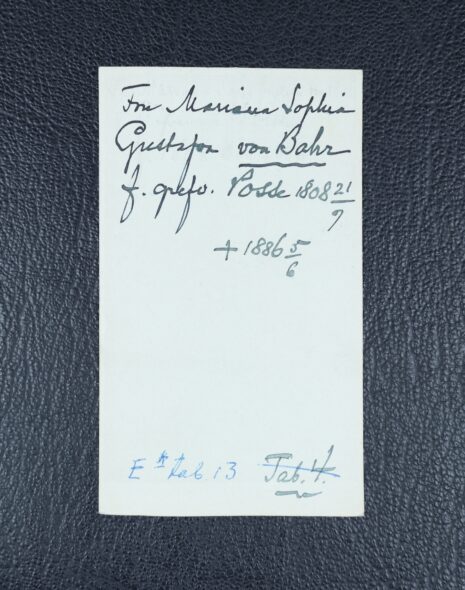 Fru Mariana Sophia
Gustafva von Bahr
f. grefv. Posse 1808 21/9
+ 1886 5/6
E tab 13 Tab. 4.